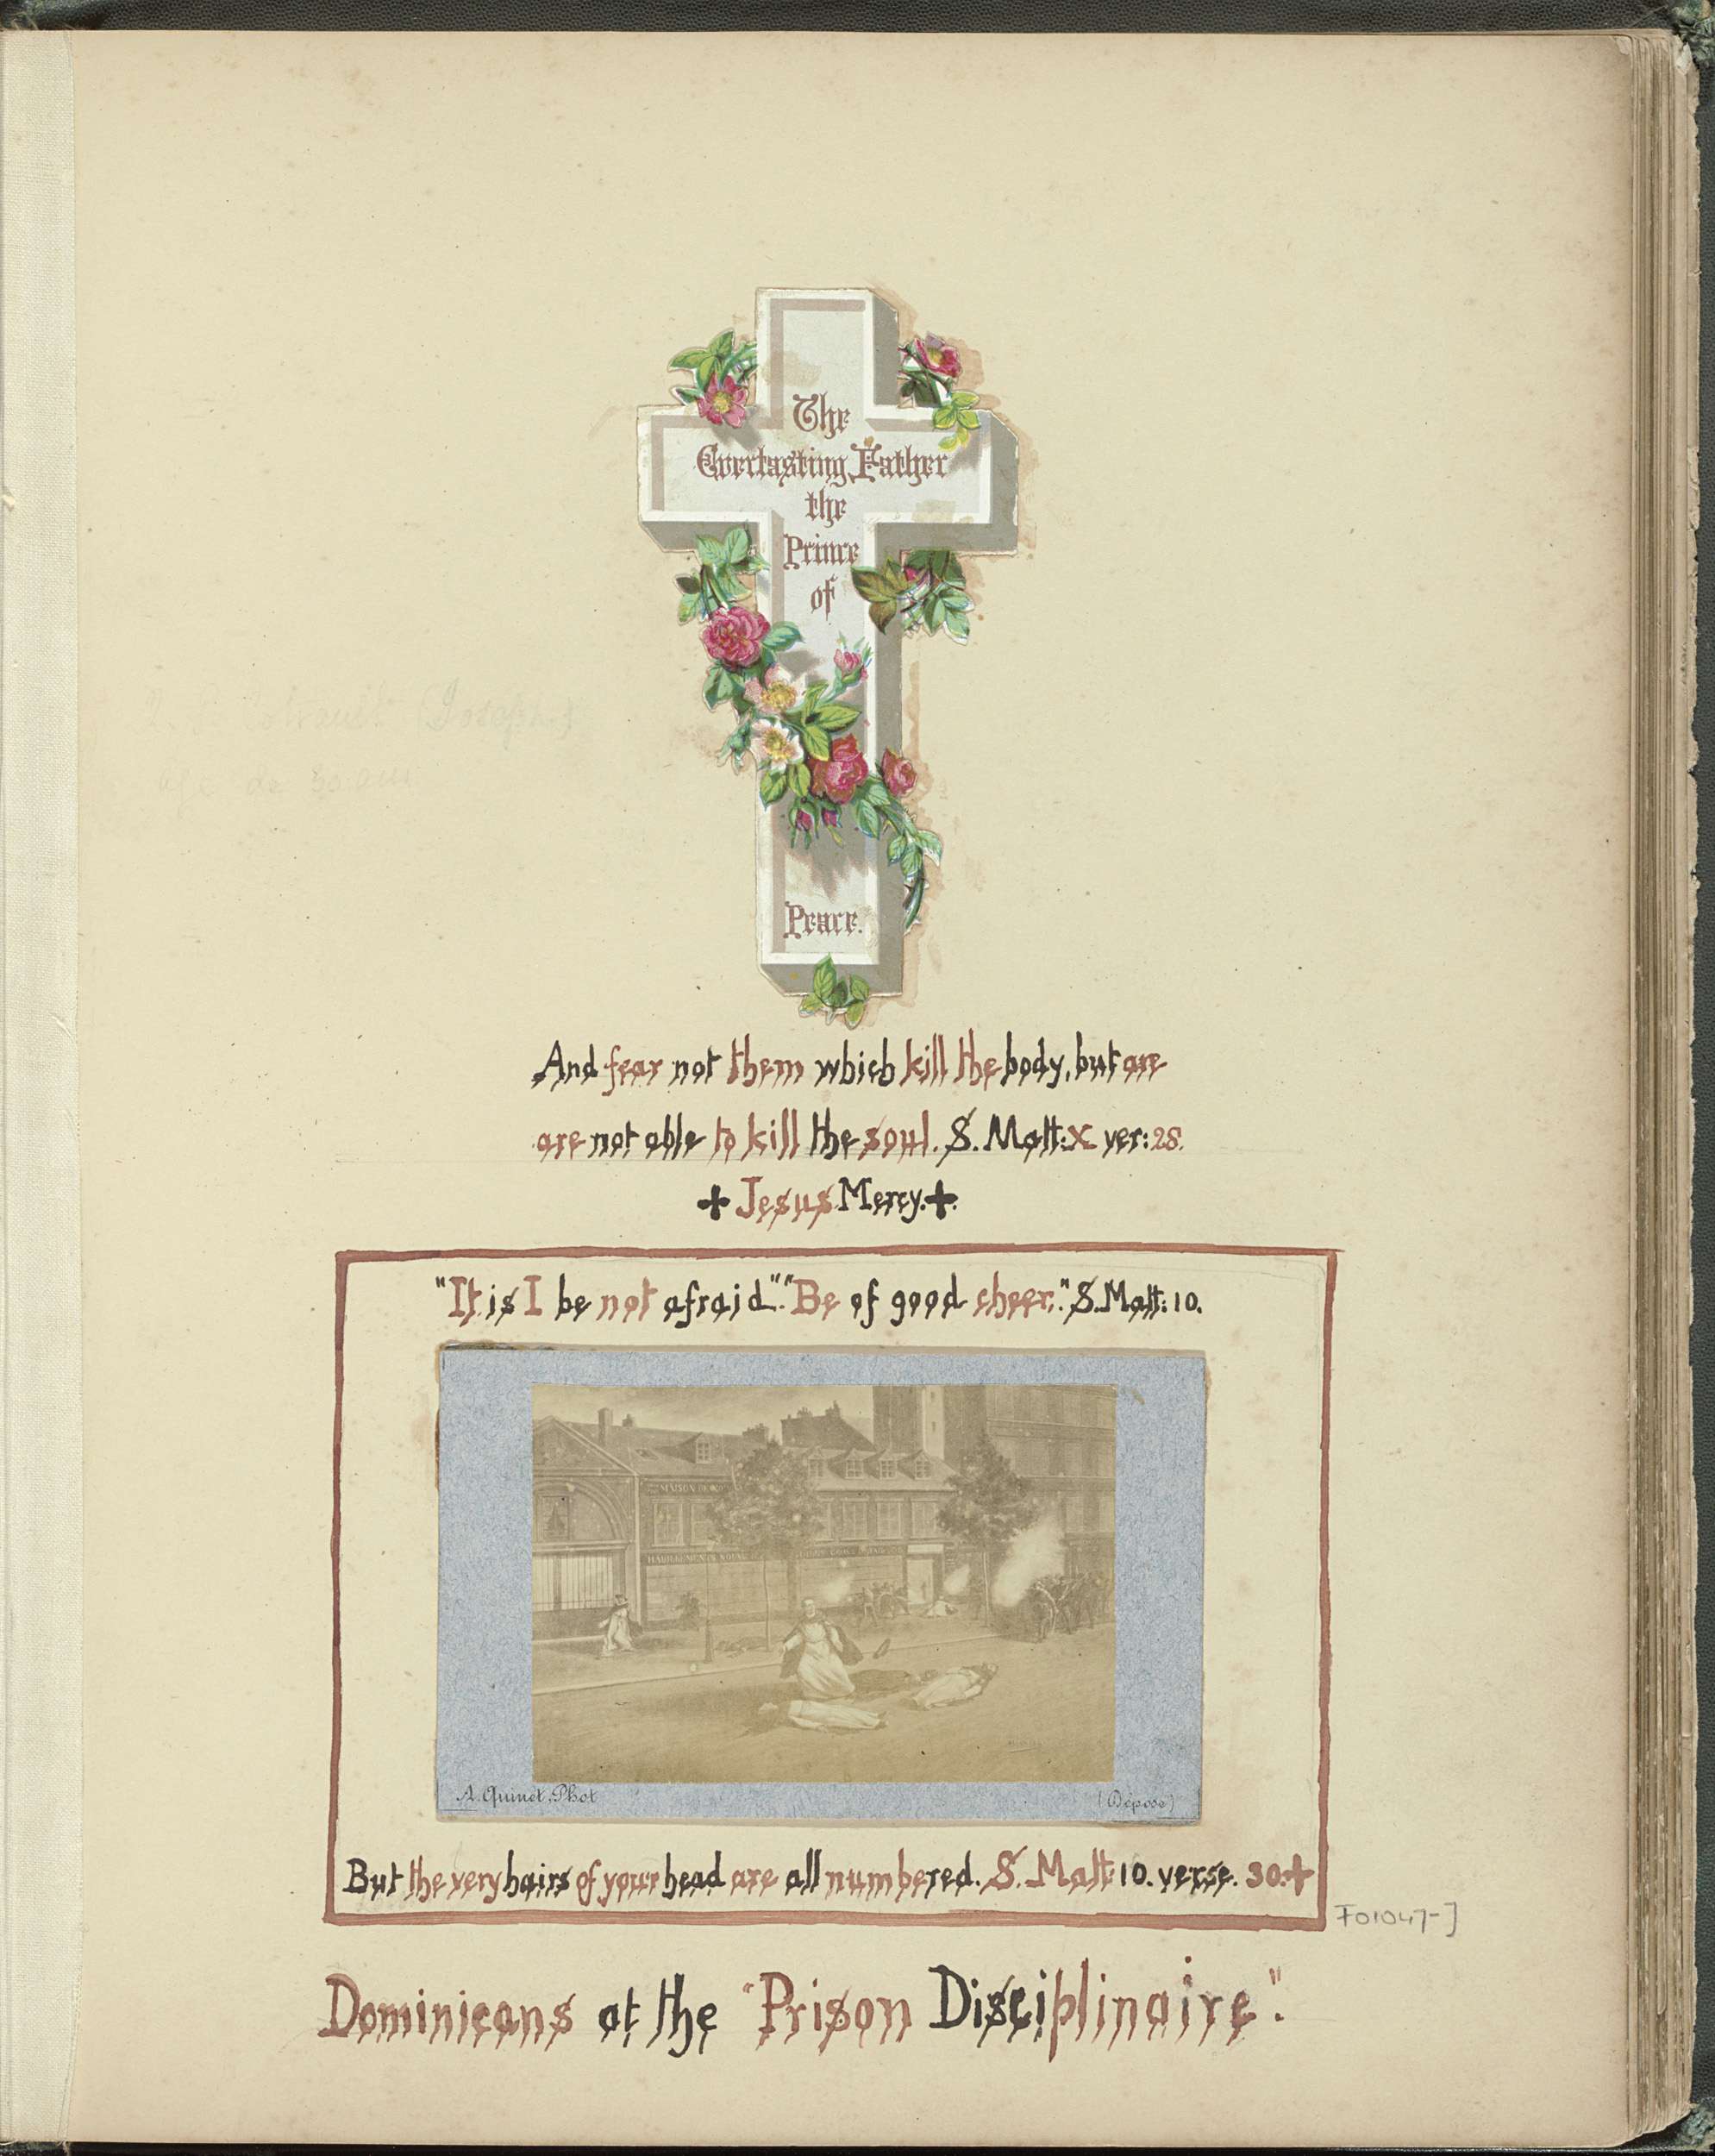 The
Everlasting Father
the
Prince
of
Peace.
(Joseph)
age de 30 ans
And fear not them which kill the body, but are
are not able to kill the soul. S. Matt: X ver: 28.
+ Jesus Mercy. +
"It is I be not afraid". "Be of good cheer." S. Matt: 10.
MAISON DE
A. Quinet. Phot
(Déposé)
But the very hairs of your head are all numbered. S. Matt 10. verse. 30. +
F01047-J
Dominicans at the "Prison Disciplinaire".